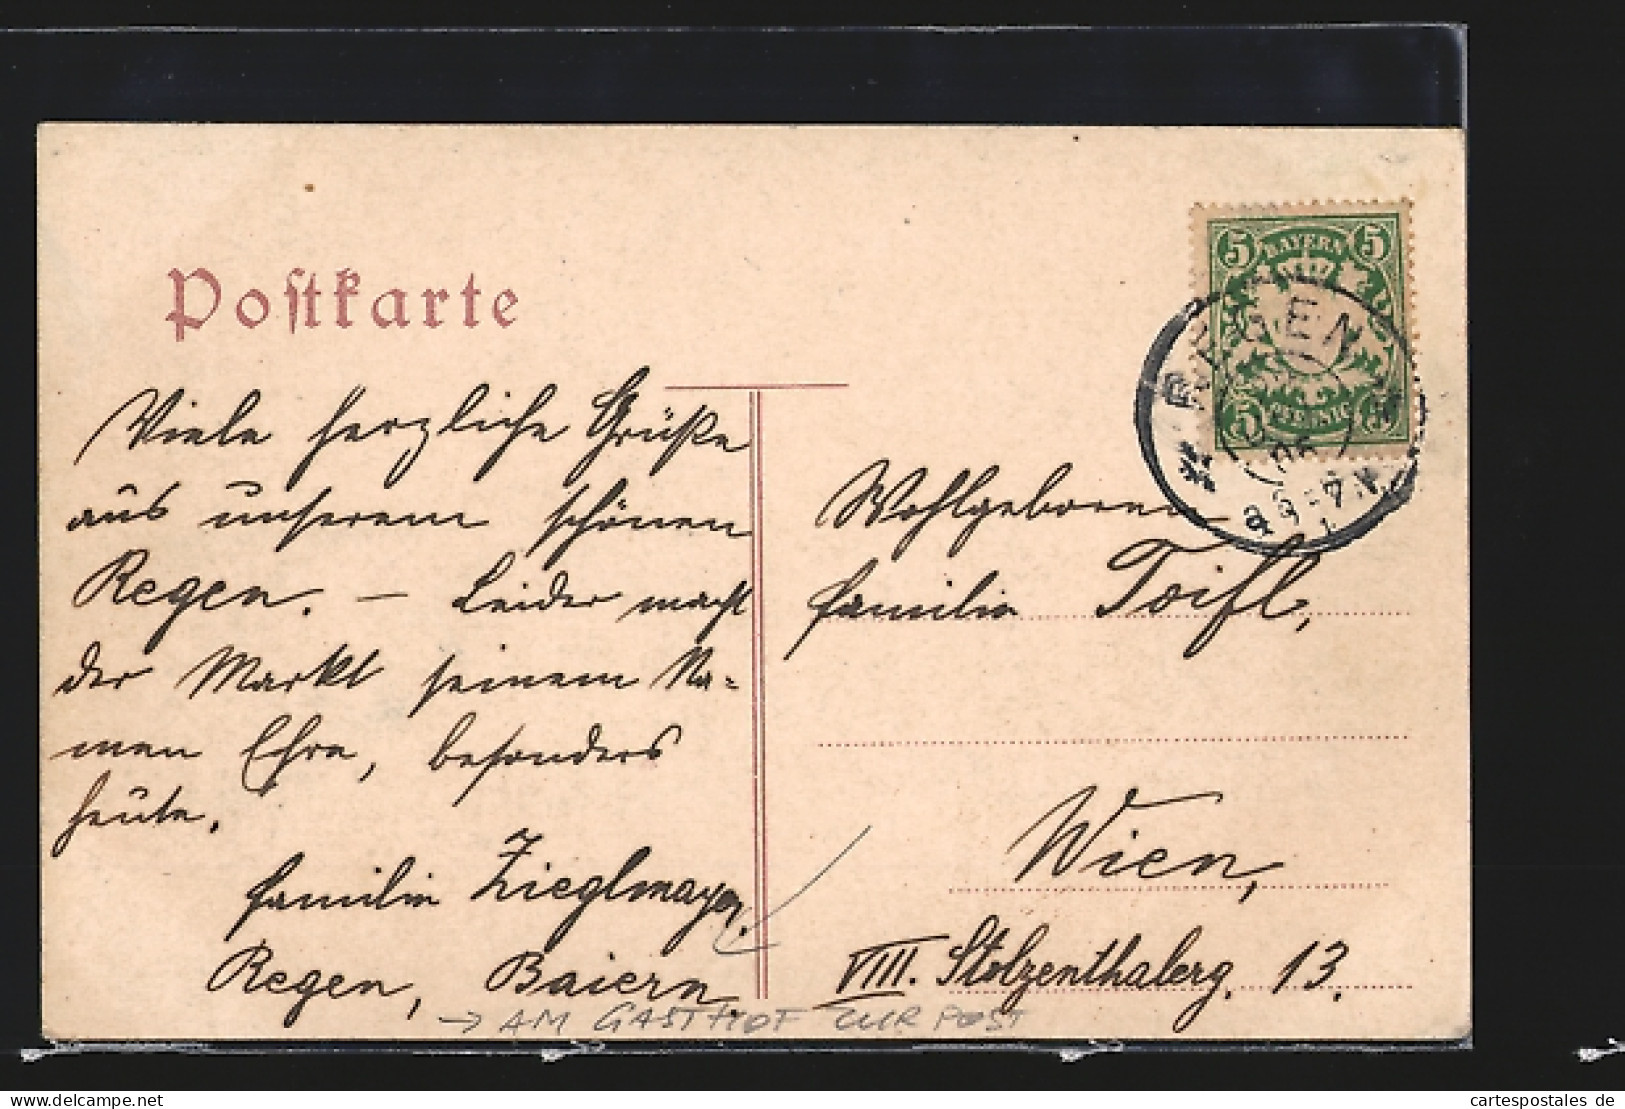 Postkarte
Viele herzliche Grüße
aus unserem schönen
Regen. – Leider macht
der Markt seinem Na=
men Ehre, besonders
heute.
Familie Zieglmayer,
Regen, Baiern.
→ AM GASTHOF ZUR POST
5 BAYERN 5
5 PFENNIG 5
REGEN
Wohlgeboren
Familie Toifl,
Wien,
VIII. Stolzenthalerg. 13.
cartespostales.de
www.delcampe.net/de
cartespostales de